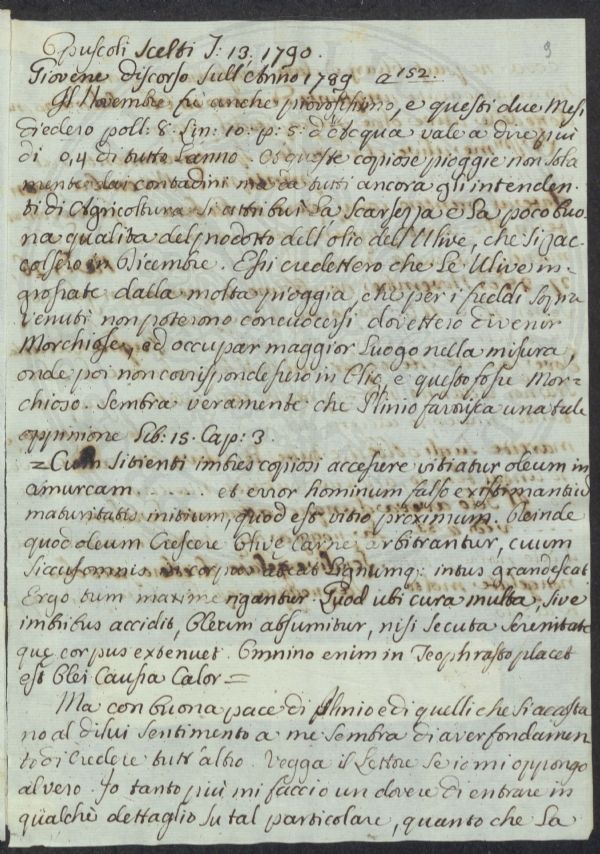 Opuscoli Scelti T: 13. 1790. 9
Giovene discorso sull'Anno 1789 a 152.
Il Novembre fù anche piovosissimo, e questi due Mesi
diedero poll: 8: Lin: 10: p: 5: d'Acqua vale a dire piu
di 0,4 di tutto l'anno. A queste copiose pioggie non sola
mente dai contadini ma da tutti ancora gli intenden-
ti di Agricoltura si attribuì la scarsezza e la poco buo-
na qualita del prodotto dell'olio dell'Ulive, che si rac-
colsero in Dicembre. Essi credettero che le Ulive in-
grossate dalla molta pioggia, che per i freddi sopra
venuti non poterono concuocersi dovettero divenir
Morchiose, ed occupar maggior luogo nella misura,
onde poi non corrispondessero in Olio, e questo fosse Mor-
chioso. Sembra veramente che Plinio favorisca una tale
oppinione Lib: 15. Cap: 3.
=Cum sitienti imbres copiosi accessere vitiatur oleum in
amurcam. . . . . . et error hominum falso existimantium
maturitatis initium, quod est vitio proximum. Deinde
quod oleum crescere Olivę carne arbitrantur, cuum
siccus omnis in corpus abeat lignumq: intus grandescat
Ergo tum maxime rigantur. Quod ubi cura multa, sive
imbribus accidit, Oleum absumitur, nisi secuta serenitate
quę corpus extenuet. Omnino enim in Teophrasto placet
est Olei causa Calor=
Ma con buona pace di Plinio e di quelli che si accosta
no al di lui sentimento a me sembra di aver fondamen
to di credere tutt'altro. Vegga il Lettore se io mi oppongo
al vero. Io tanto più mi faccio un dovere di entrare in
qualchè dettaglio su tal particolare, quanto che la